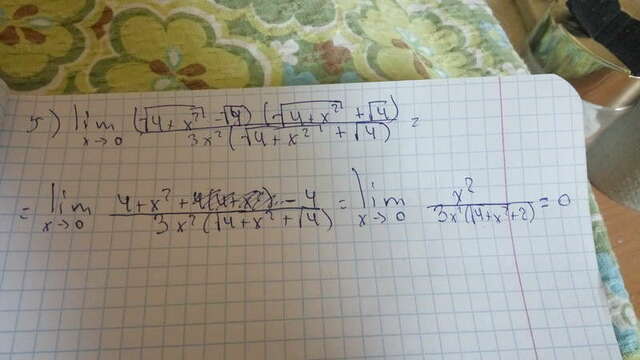 5) lim x→0 (√4+x² - √4) (√4+x² + √4) / 3x² (√4+x² + √4) =
= lim x→0 4+x² + - 4 / 3x² (√4+x² + √4) = lim x→0 x² / 3x² (√4+x² + 2) = 0